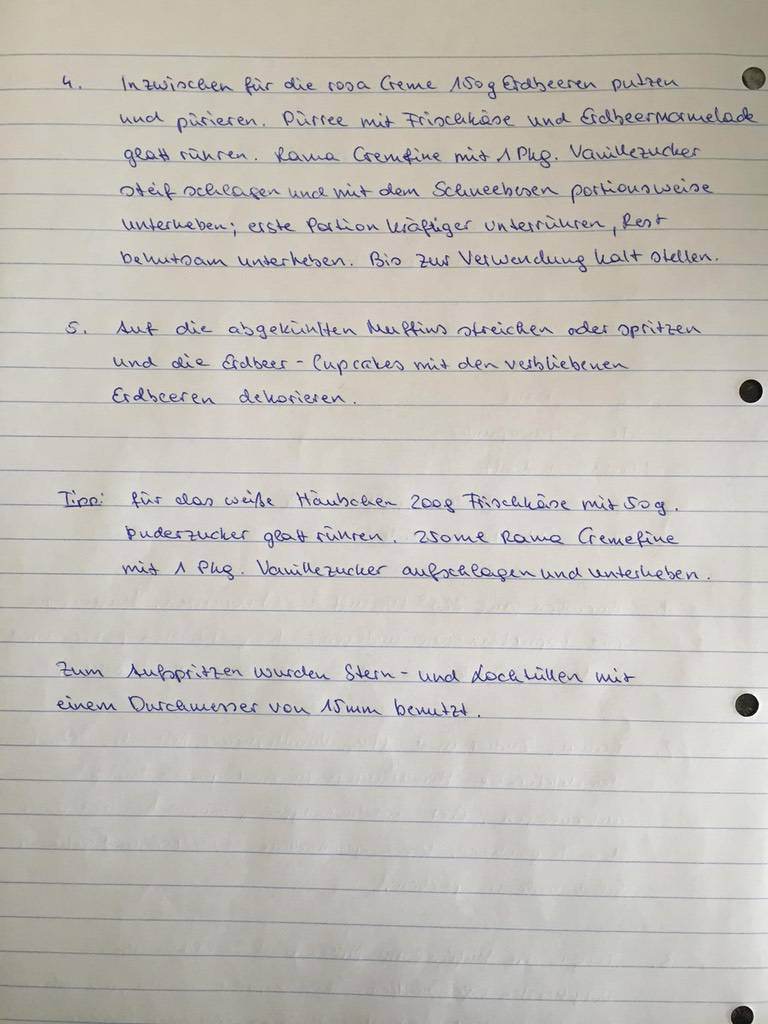 4. Inzwischen für die rosa Creme 150g Erdbeeren putzen
und pürieren. Pürree mit Frischkäse und Erdbeermarmelade
glatt rühren. Rama Cremefine mit 1 Pkg. Vanillezucker
steif schlagen und mit dem Schneebesen portionsweise
unterheben; erste Portion kräftiger unterrühren, Rest
behutsam unterheben. Bis zur Verwendung kalt stellen.
5. Auf die abgekühlten Muffins streichen oder spritzen
und die Erdbeer-Cupcakes mit den verbliebenen
Erdbeeren dekorieren.
Tipp: für das weiße Häubchen 200g Frischkäse mit 50g.
Puderzucker glatt rühren. 250ml Rama Cremefine
mit 1 Pkg. Vanillezucker aufschlagen und unterheben.
Zum Aufspritzen wurden Stern- und Lochtüllen mit
einem Durchmesser von 15mm benutzt.